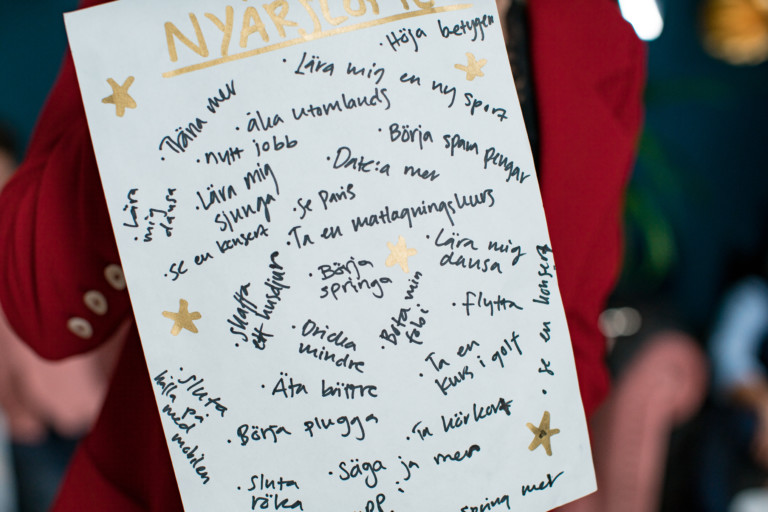 NYÅRSLÖFTE
· Höja betygen
· Lära mig en ny sport
· Träna mer
· åka utomlands
· nytt jobb
· Börja spara pengar
· Date:a mer
· Lära mig
dansa
· Lära mig
sjunga
· Se Paris
· Se en konsert
· Ta en matlagningskurs
· Lära mig
dansa
· Börja
springa
· skaffa
ett husdjur
· Bota min
fobi
· flytta
· Se en konsert
· Dricka
mindre
· Ta en
kurs i golf
· Äta bättre
· Sluta
hålla på
med mobilen
· Börja plugga
· Ta körkort
· Säga ja mer
· Sluta
röka
spring mer